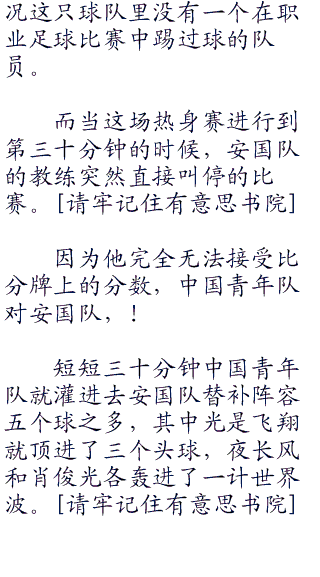 况这只球队里没有一个在职
业足球比赛中踢过球的队
员。
而当这场热身赛进行到
第三十分钟的时候，安国队
的教练突然直接叫停的比
赛。[请牢记住有意思书院]
因为他完全无法接受比
分牌上的分数，中国青年队
对安国队，！
短短三十分钟中国青年
队就灌进去安国队替补阵容
五个球之多，其中光是飞翔
就顶进了三个头球，夜长风
和肖俊光各轰进了一计世界
波。[请牢记住有意思书院]